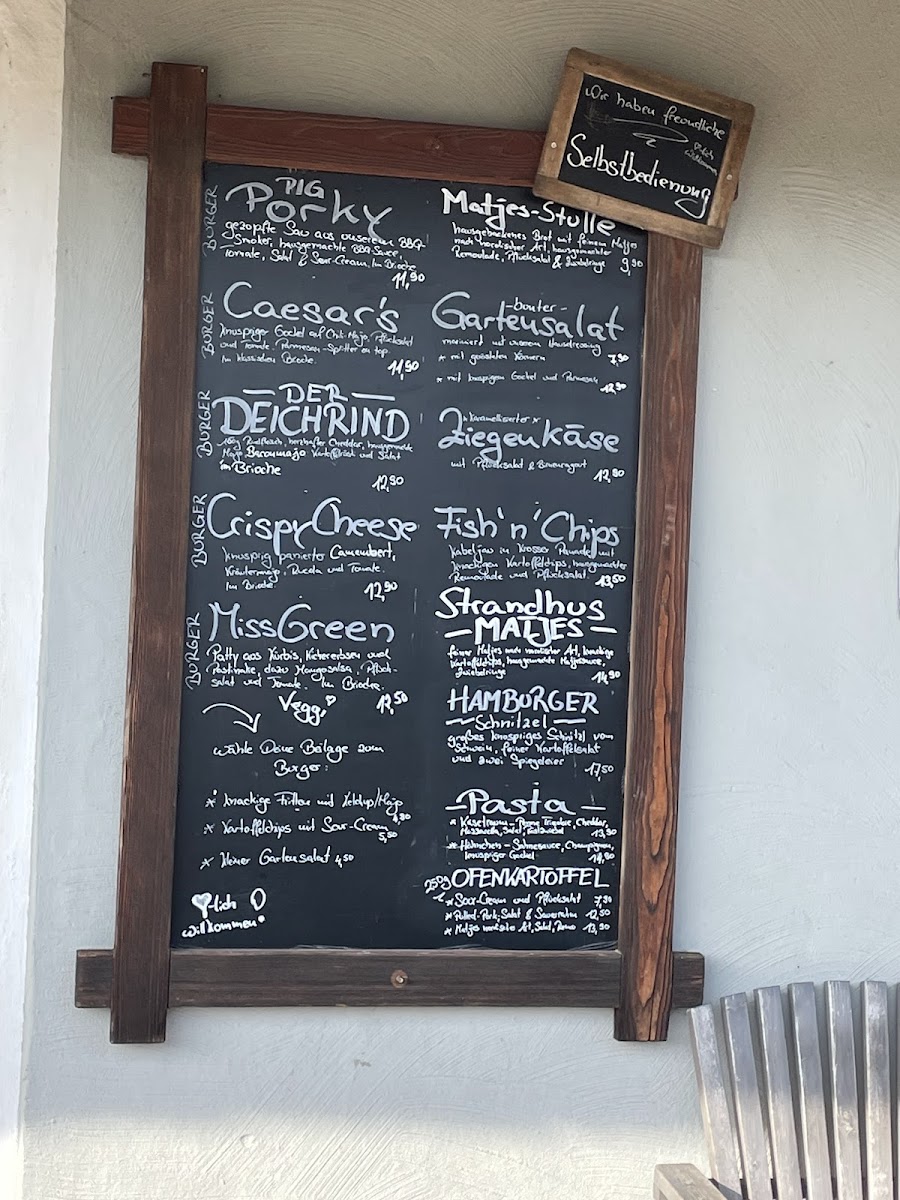 Wir haben freundliche
Selbstbedienung
BURGER
PIG
Porky
gezopfte Sau aus unserem BBQ-
Smoker, hausgemachte BBQ-Sauce,
Tomate, Salat & Sour-Cream. Im Brioche
11,90
BURGER
Caesar's
Knuspriger Gockel auf Chili-Mayo, Pflücksalat
und Tomate. Parmesan-Splitter on top.
Im klassischen Brioche.
11,90
BURGER
— DER —
DEICHRIND
Rindfleisch, herzhafter Cheddar, hausgemachte
Mayo, Baconmajo Kartoffelrösti und Salat
im Brioche
12,90
BURGER
CrispyCheese
Knusprig panierter Camembert,
Kräutermajo, Rucola und Tomate.
Im Brioche.
12,90
BURGER
MissGreen
Patty aus Kürbis, Kichererbsen und
Pastinake, dazu Mangosalsa, Pflück-
salat und Tomate. Im Brioche.
Veggi
12,50
Wähle Deine Beilage zum
Burger:
* knackige Fritten mit Ketchup/Majo
4,80
* Kartoffelchips mit Sour-Cream
5,50
* kleiner Gartensalat 4,50
♥lich
willkommen!
Matjes-Stulle
hausgebackenes Brot mit feinem Matjes
nach nordischer Art, hausgemachter
Remoulade, Pflücksalat & Zwiebelringe
9,90
-bunter-
Gartensalat
mariniert mit unserem Hausdressing
* mit gerösteten Körnern
7,90
* mit knusprigem Gockel und Parmesan
12,90
* Karamellisierter *
Ziegenkäse
mit Pflücksalat & Birnenragout
12,90
Fish'n'Chips
Kabeljau in Krosser Panade mit
knackigen Kartoffelchips, hausgemachter
Remoulade und Pflücksalat.
13,50
Strandhus
— MATJES —
feiner Matjes nach nordischer Art, knackige
Kartoffelchips, hausgemachte Matjessauce,
Zwiebelringe
14,90
HAMBURGER
Schnitzel
großes knuspriges Schnitzel vom
Schwein, feiner Kartoffelsalat
und zwei Spiegeleier
17,50
— Pasta —
* Käsetraum - Penne Tricolore, Cheddar,
Mozzarella, Salat,
13,90
* Hähnchen - Sahnesauce, Champignon,
knuspriger Gockel
14,90
250g
OFENKARTOFFEL
* Sour-Cream und Pflücksalat 7,90
* Pulled-Pork, Salat & Sauerrahm 12,50
* Matjes nordische Art, Salat, 13,90